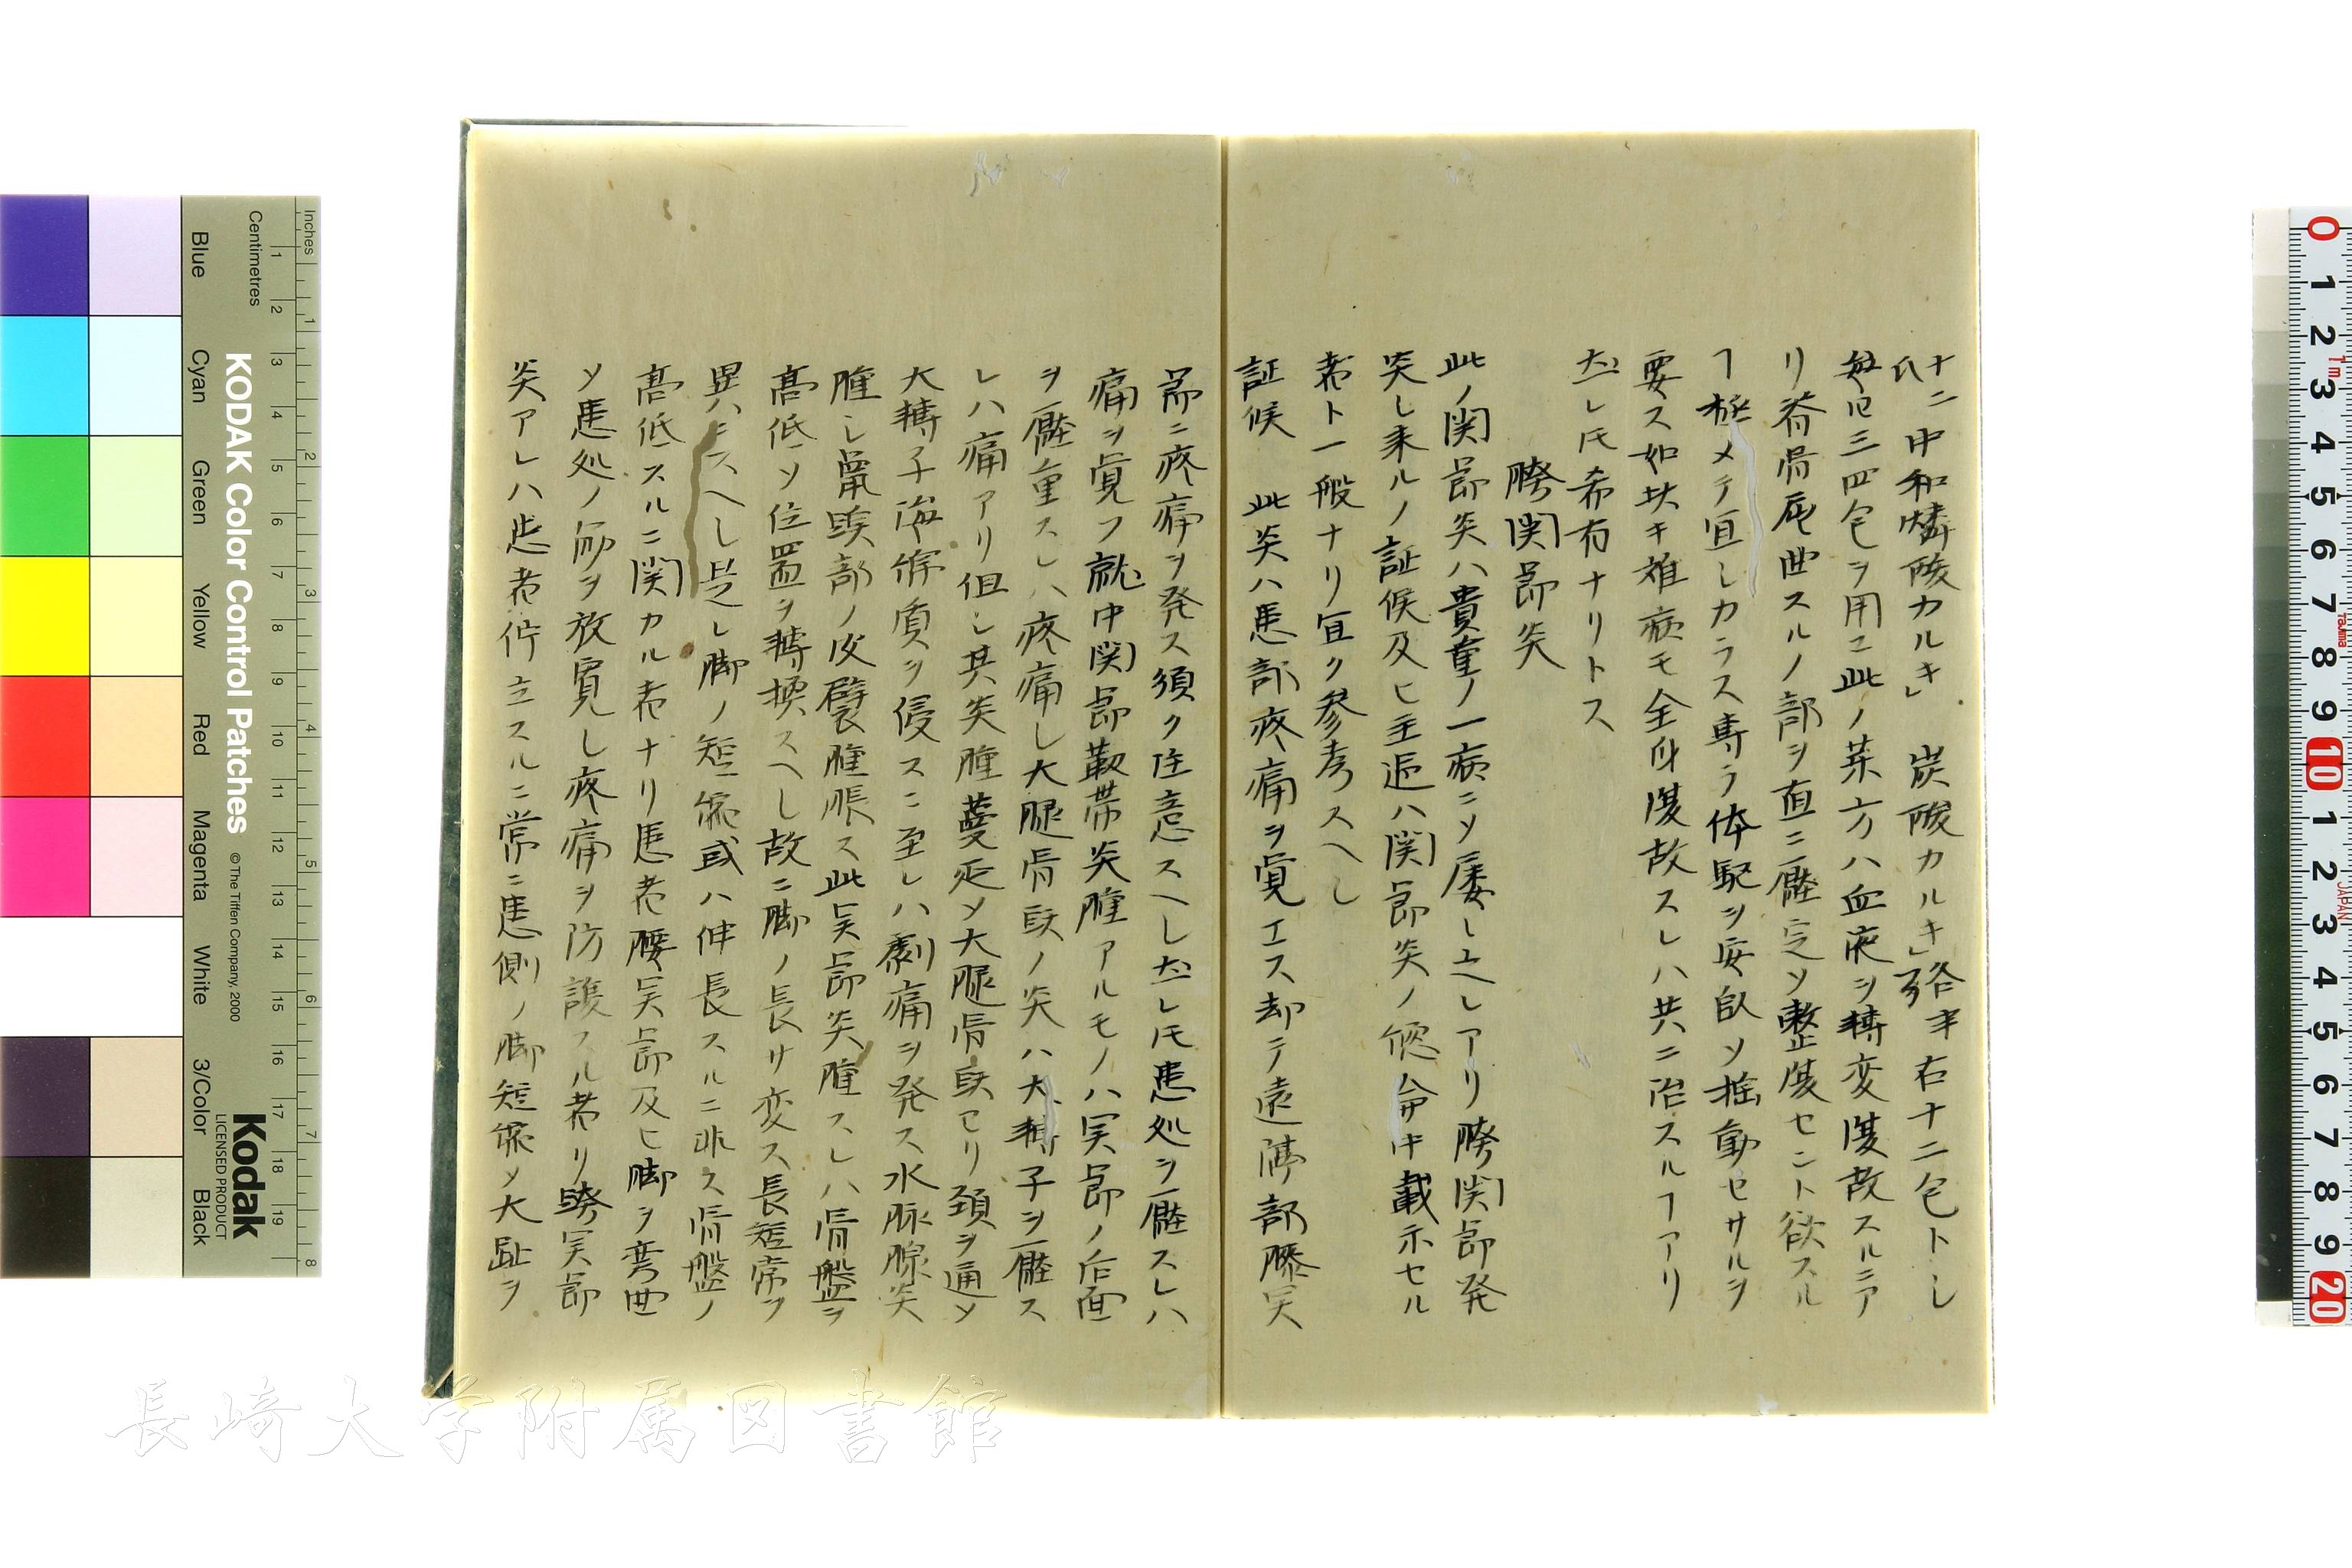 十二中和燐酸カルキ」炭酸カルキ」各半右十二包トシ
毎日三四包ヲ用ユ此ノ薬方ハ血液ヲ轉変復故スルニア
リ脊骨屈曲スルノ部ヲ直ニ壓定ソ整復セント欲スル
ヿ極メテ宜シカラス専ラ体駆ヲ安臥ソ揺動セサルヲ
要ス如斯キ雑病モ全身復故スレハ共ニ治スルヿアリ
然レ𪜈希有ナリトス
胯関節炎
此ノ関節炎ハ貴重ノ一病ニソ屡シ之レアリ胯関節発
炎シ来ルノ証候及ヒ主逅ハ関節炎ノ総論中載示セル
者ト一般ナリ宜ク参考スヘシ
証候 此炎ハ患部疼痛ヲ覚エス却テ遠隔部膝関
節ニ疼痛ヲ発ス須ク注意スヘシ然レ𪜈患処ヲ壓スレハ
痛ヲ覚フ就中関節靱帯炎腫アルモノハ関節ノ后面
ヲ壓重スレハ疼痛シ大腿骨頭ノ炎ハ大轉子ヲ壓ス
レハ痛アリ但シ其炎腫蔓延ソ大腿骨頭ヨリ頚ヲ通ソ
大轉子海綿質ヲ侵スニ至レハ劇痛ヲ発ス水脉腺炎
腫シ鼠蹊部ノ皮襞腫脹ス此関節炎腫スレハ骨盤ヲ
高低ソ位置ヲ轉換スヘシ故ニ脚ノ長サ変ス長短常ヲ
異ニスヘシ是レ脚ノ短縮或ハ伸長スルニ非ス骨盤ノ
高低スルニ関カル者ナリ患者腰関節及ヒ脚ヲ弯曲
ソ患処ノ筋ヲ放寛シ疼痛ヲ防護スル者ナリ胯関節
炎アレハ患者佇立スルニ常ニ患側ノ脚短縮ソ大趾ヲ
KODAK Color Control Patches
© The Tiffen Company, 2000
Kodak
LICENSED PRODUCT
Inches
Centimetres
Blue
Cyan
Green
Yellow
Red
Magenta
White
3/Color
Black
長崎大学附属図書館